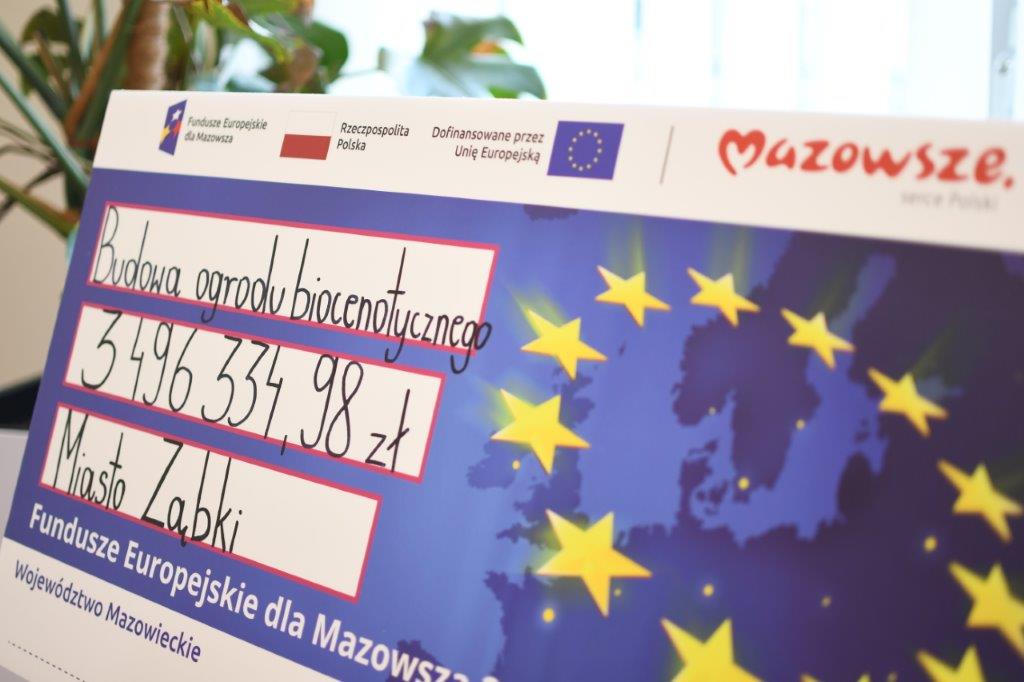 Fundusze Europejskie
dla Mazowsza
Rzeczpospolita
Polska
Dofinansowane przez
Unię Europejską
Mazowsze.
serce Polski
Budowa ogrodu biocenotycznego
3 496 334,98 zł
Miasto Ząbki
Fundusze Europejskie dla Mazowsza
Województwo Mazowieckie